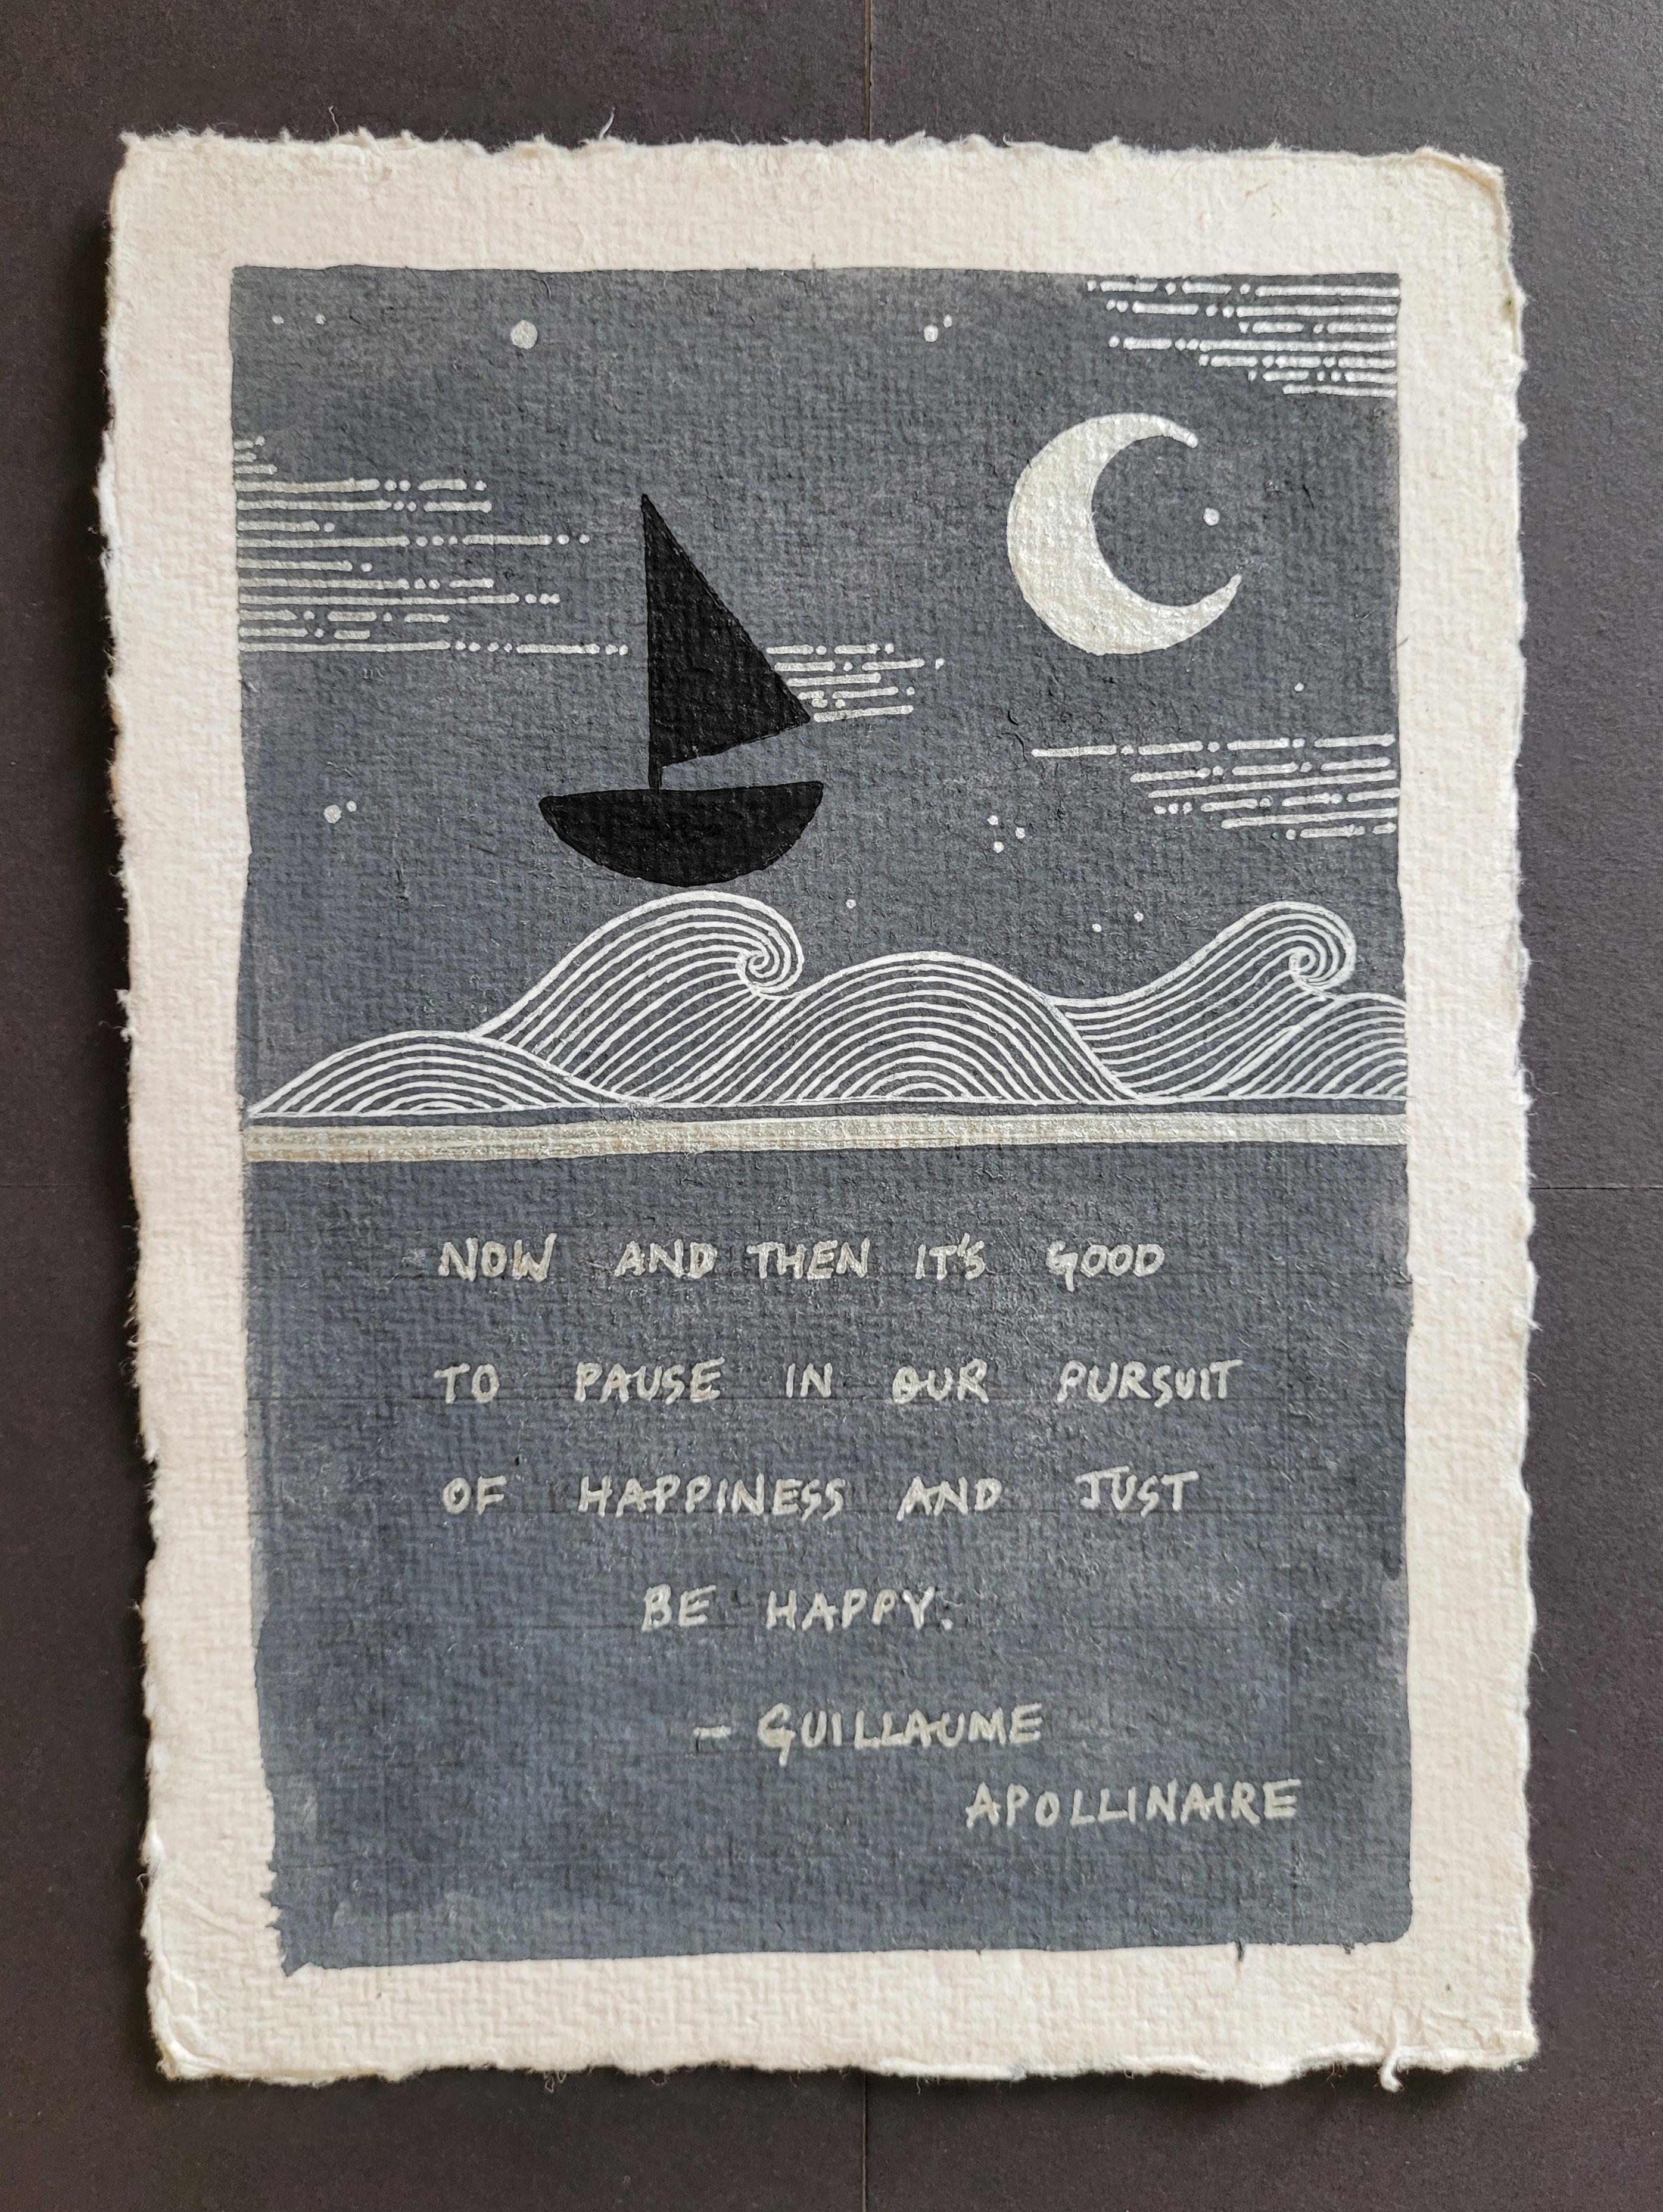 NOW AND THEN IT'S GOOD
TO PAUSE IN OUR PURSUIT
OF HAPPINESS AND JUST
BE HAPPY.
- GUILLAUME
APOLLINAIRE